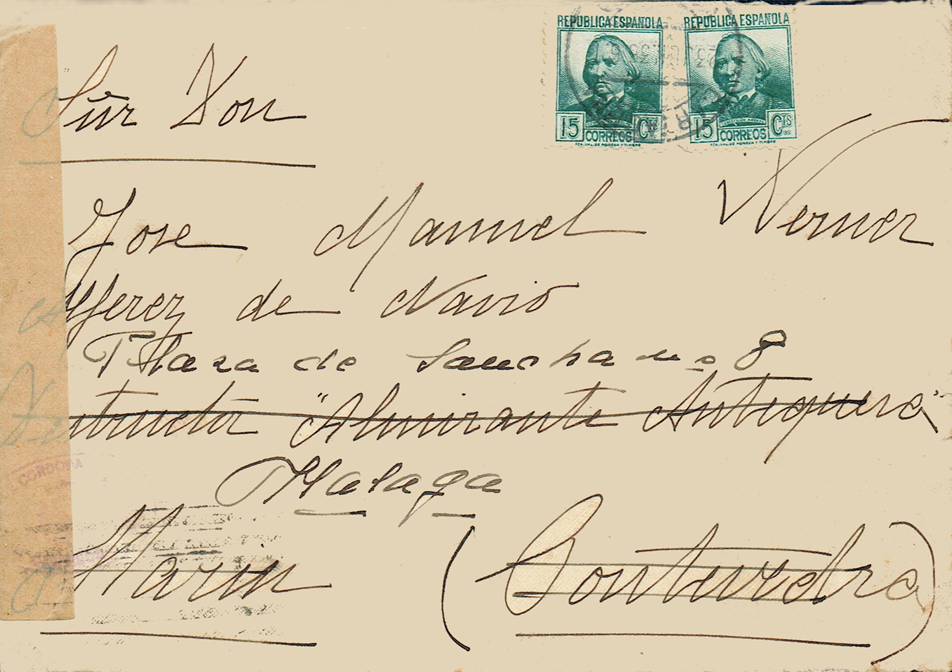 REPÚBLICA ESPAÑOLA REPÚBLICA ESPAÑOLA
15 CTS CORREOS 15 CTS CORREOS
Sñr Don
Jose Manuel Werner
Alferez de Navio
Plaza de nº 8
"Almirante Antequera"
Malaga
CORDOBA
Marin (Pontevedra)